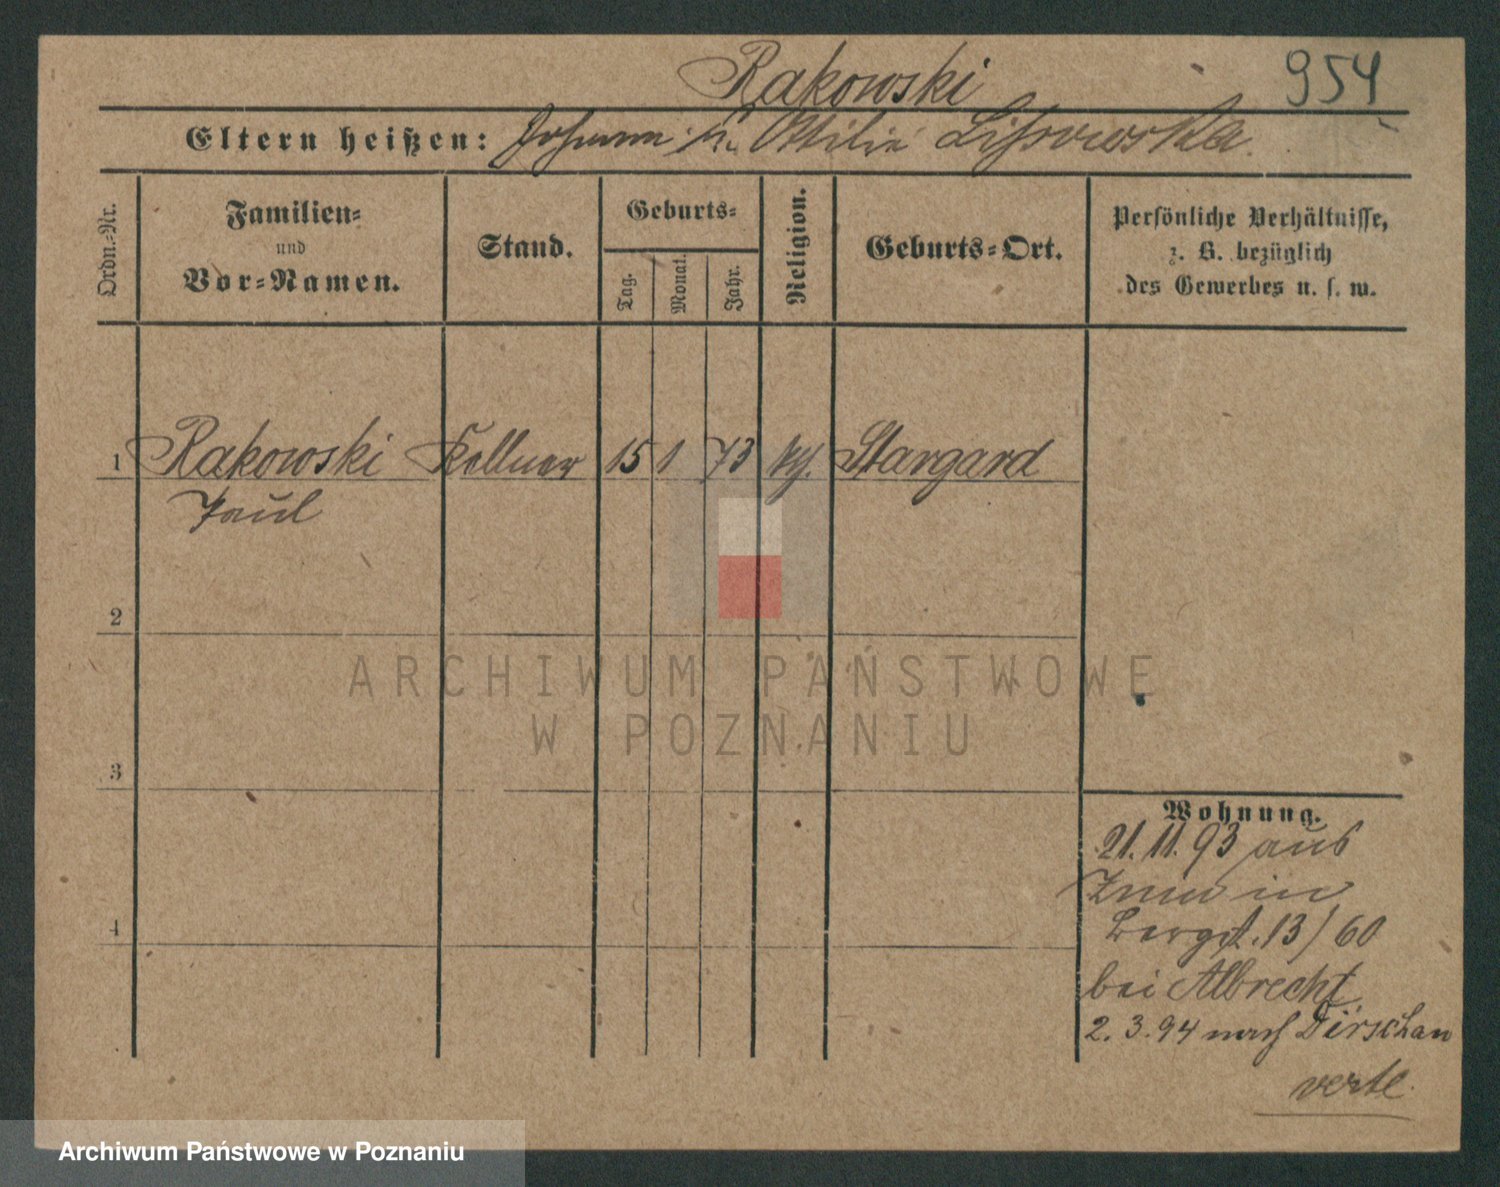 Rakowski
954
Eltern heißen: Johann u. Ottilie Lissowska
Ordn.-Nr.
Familien-
und
Vor-Namen.
Stand.
Geburts-
Tag.
Monat.
Jahr.
Religion.
Geburts-Ort.
Persönliche Verhältnisse,
z. B. bezüglich
des Gewerbes u. s. w.
1 Rakowski Kellner 15 1 73 Stargard
Paul
2
3
4
Wohnung.
21. 11. 93 aus
in
Bergst. 13/60
bei Albrecht
2. 3. 94 nach Dirschau
verte
ARCHIWUM PAŃSTWOWE
W POZNANIU
Archiwum Państwowe w Poznaniu